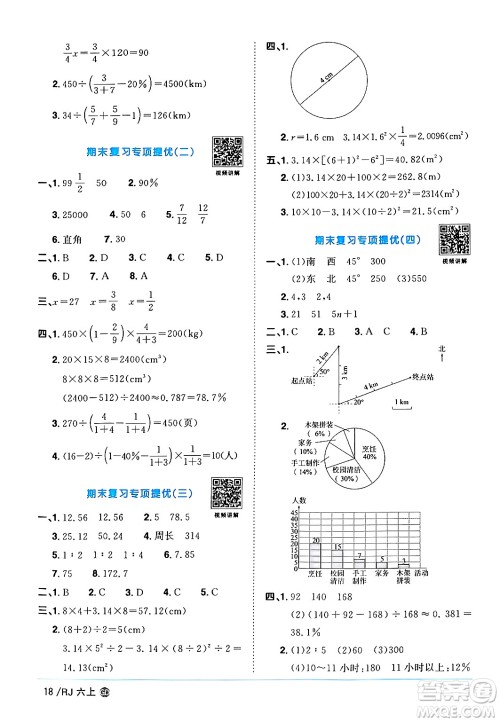 3/4 x=3/4×120=90
2. 450÷(3/(3+7)-3/8)=4500(km)
3. 34÷(5/7+5/9-1)=126(km)
期末复习专项提优(二)
视频讲解
一、1. 99 1/2 50 2. 90%
3. 25000 4. 7/18 5. 7/12 17/12
6. 直角 7. 30
二、1. B 2. A 3. C 4. A 5. D
三、x=27 x=3/8 x=1/9
四、1. 450×(1-2/9)×(1-4/7)=150(km)
2. 20×15×8=2400(cm³)
8×8×8=512(cm³)
(2400-512)÷2400×100%≈78.7%
3. 270÷(4/(1+4)-1/(1+4))=450(页)
4. (16-2)÷(1-40%-1/(1+3))×1/(1+3)=10(人)
期末复习专项提优(三)
视频讲解
一、1. 12.56 12.56 2. 5 78.5
3. 25.12 50.24 4. 周长 3.14
5. 1∶2 1∶2 1∶4 6. 12.56
7. 172.7 8. 9.12
二、1. C 2. D 3. C 4. D 5. B
三、1. 8×4+3.14×8=57.12(cm)
2. (8+2)÷2=5(cm)
3.14×5²÷2-3.14×(8÷2)²÷2-3.14×(2÷2)²÷2=12.56(cm²)
四、1.
4 cm
2. r=1.6 cm 3.14×r²×1/4=2.0096(cm²)
五、1. 3.14×[(2+1)²+2²]=40.82(cm²)
2. (1)3.14×20+100×2=262.8(m)
(2)20×100+3.14×(20÷2)²=2314(m²)
3. 10×10-3.14×(10÷2)²=21.5(cm²)
期末复习专项提优(四)
视频讲解
一、1. (1)南 西 45° 300
(2)东 北 45° (3)550
2. 4.2
3. 21 51 5n+1
二、1. C 2. B 3. A 4. C
三、1.
北
2 km
3 km
50°
起点站
20°
4 km
终点站
1 km
2.
木架拼装
(6%)
家务
(10%)
手工制作
(14%)
校园清洁
(30%)
烹饪
(40%)
人数
45 40 35 30 25 20 15 10 5 0
20 15 7 5 3
烹饪 校园清洁 手工制作 家务 木架拼装
四、1. 92 140 168
(2)(92+140-168)÷168≈0.381=38.1%
(3)16% 11小时 11小时以上:12%
18/RJ 六上